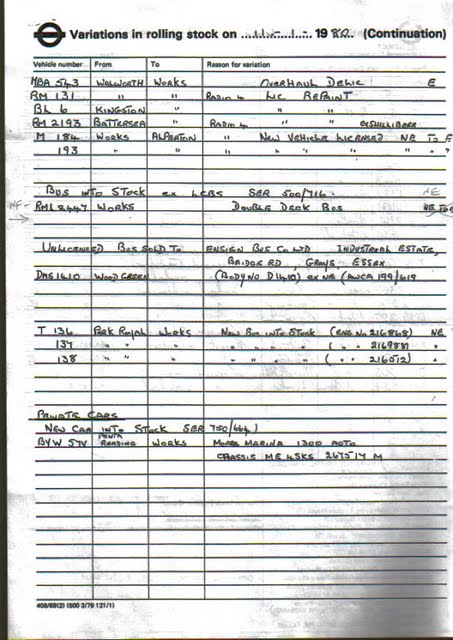 Variations in rolling stock on 1980 (Continuation)
Vehicle number From To Reason for variation
MBA 543 WALWORTH WORKS OVERHAUL DELIC E
RM 131 " " RADIO 4 LIC REPAINT
BL 6 KINGSTON " " "
RM 2193 BATTERSEA " RADIO 4 " " EX SHILLIBEER
M 184 WORKS ALPERTON " NEW VEHICLE LICENSED NE TO E
193 " " " " " " " "
BUS INTO STOCK ex LCBS SER 500/716. NE
RML 2447 WORKS DOUBLE DECK BUS
UNLICENSED BUS SOLD TO ENSIGN BUS CO LTD INDUSTRIAL ESTATE,
BRIDGE RD, GRAYS - ESSEX
DMS 1410 WOOD GREEN (BODY NO D1410) ex NE (AWCA 199/619
T 136 Park Royal WORKS NEW BUS INTO STOCK (ENG NO 216868) NE
137 " " " " " " " ( " " 216988) "
138 " " " " " " " ( " " 216012) "
PRIVATE CARS
NEW CAR INTO STOCK SER 750/664)
BYW 57V PENTA READING WORKS MORRIS MARINA 1300 AUTO
CHASSIS ME 4SKS 267517 M
408/69(2) (600 3/79 121/1)